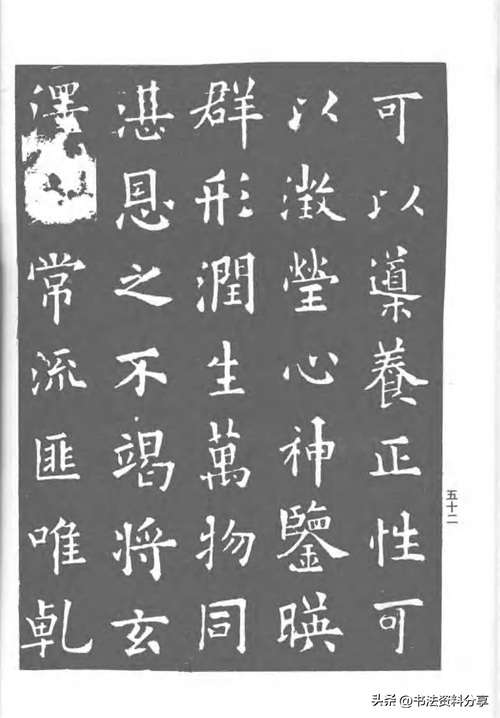 可以導養正性可
以澂瑩心神鑒暎
群形潤生萬物同
湛恩之不竭將玄
澤常流匪唯乹
五十二
头条@书法资料分享